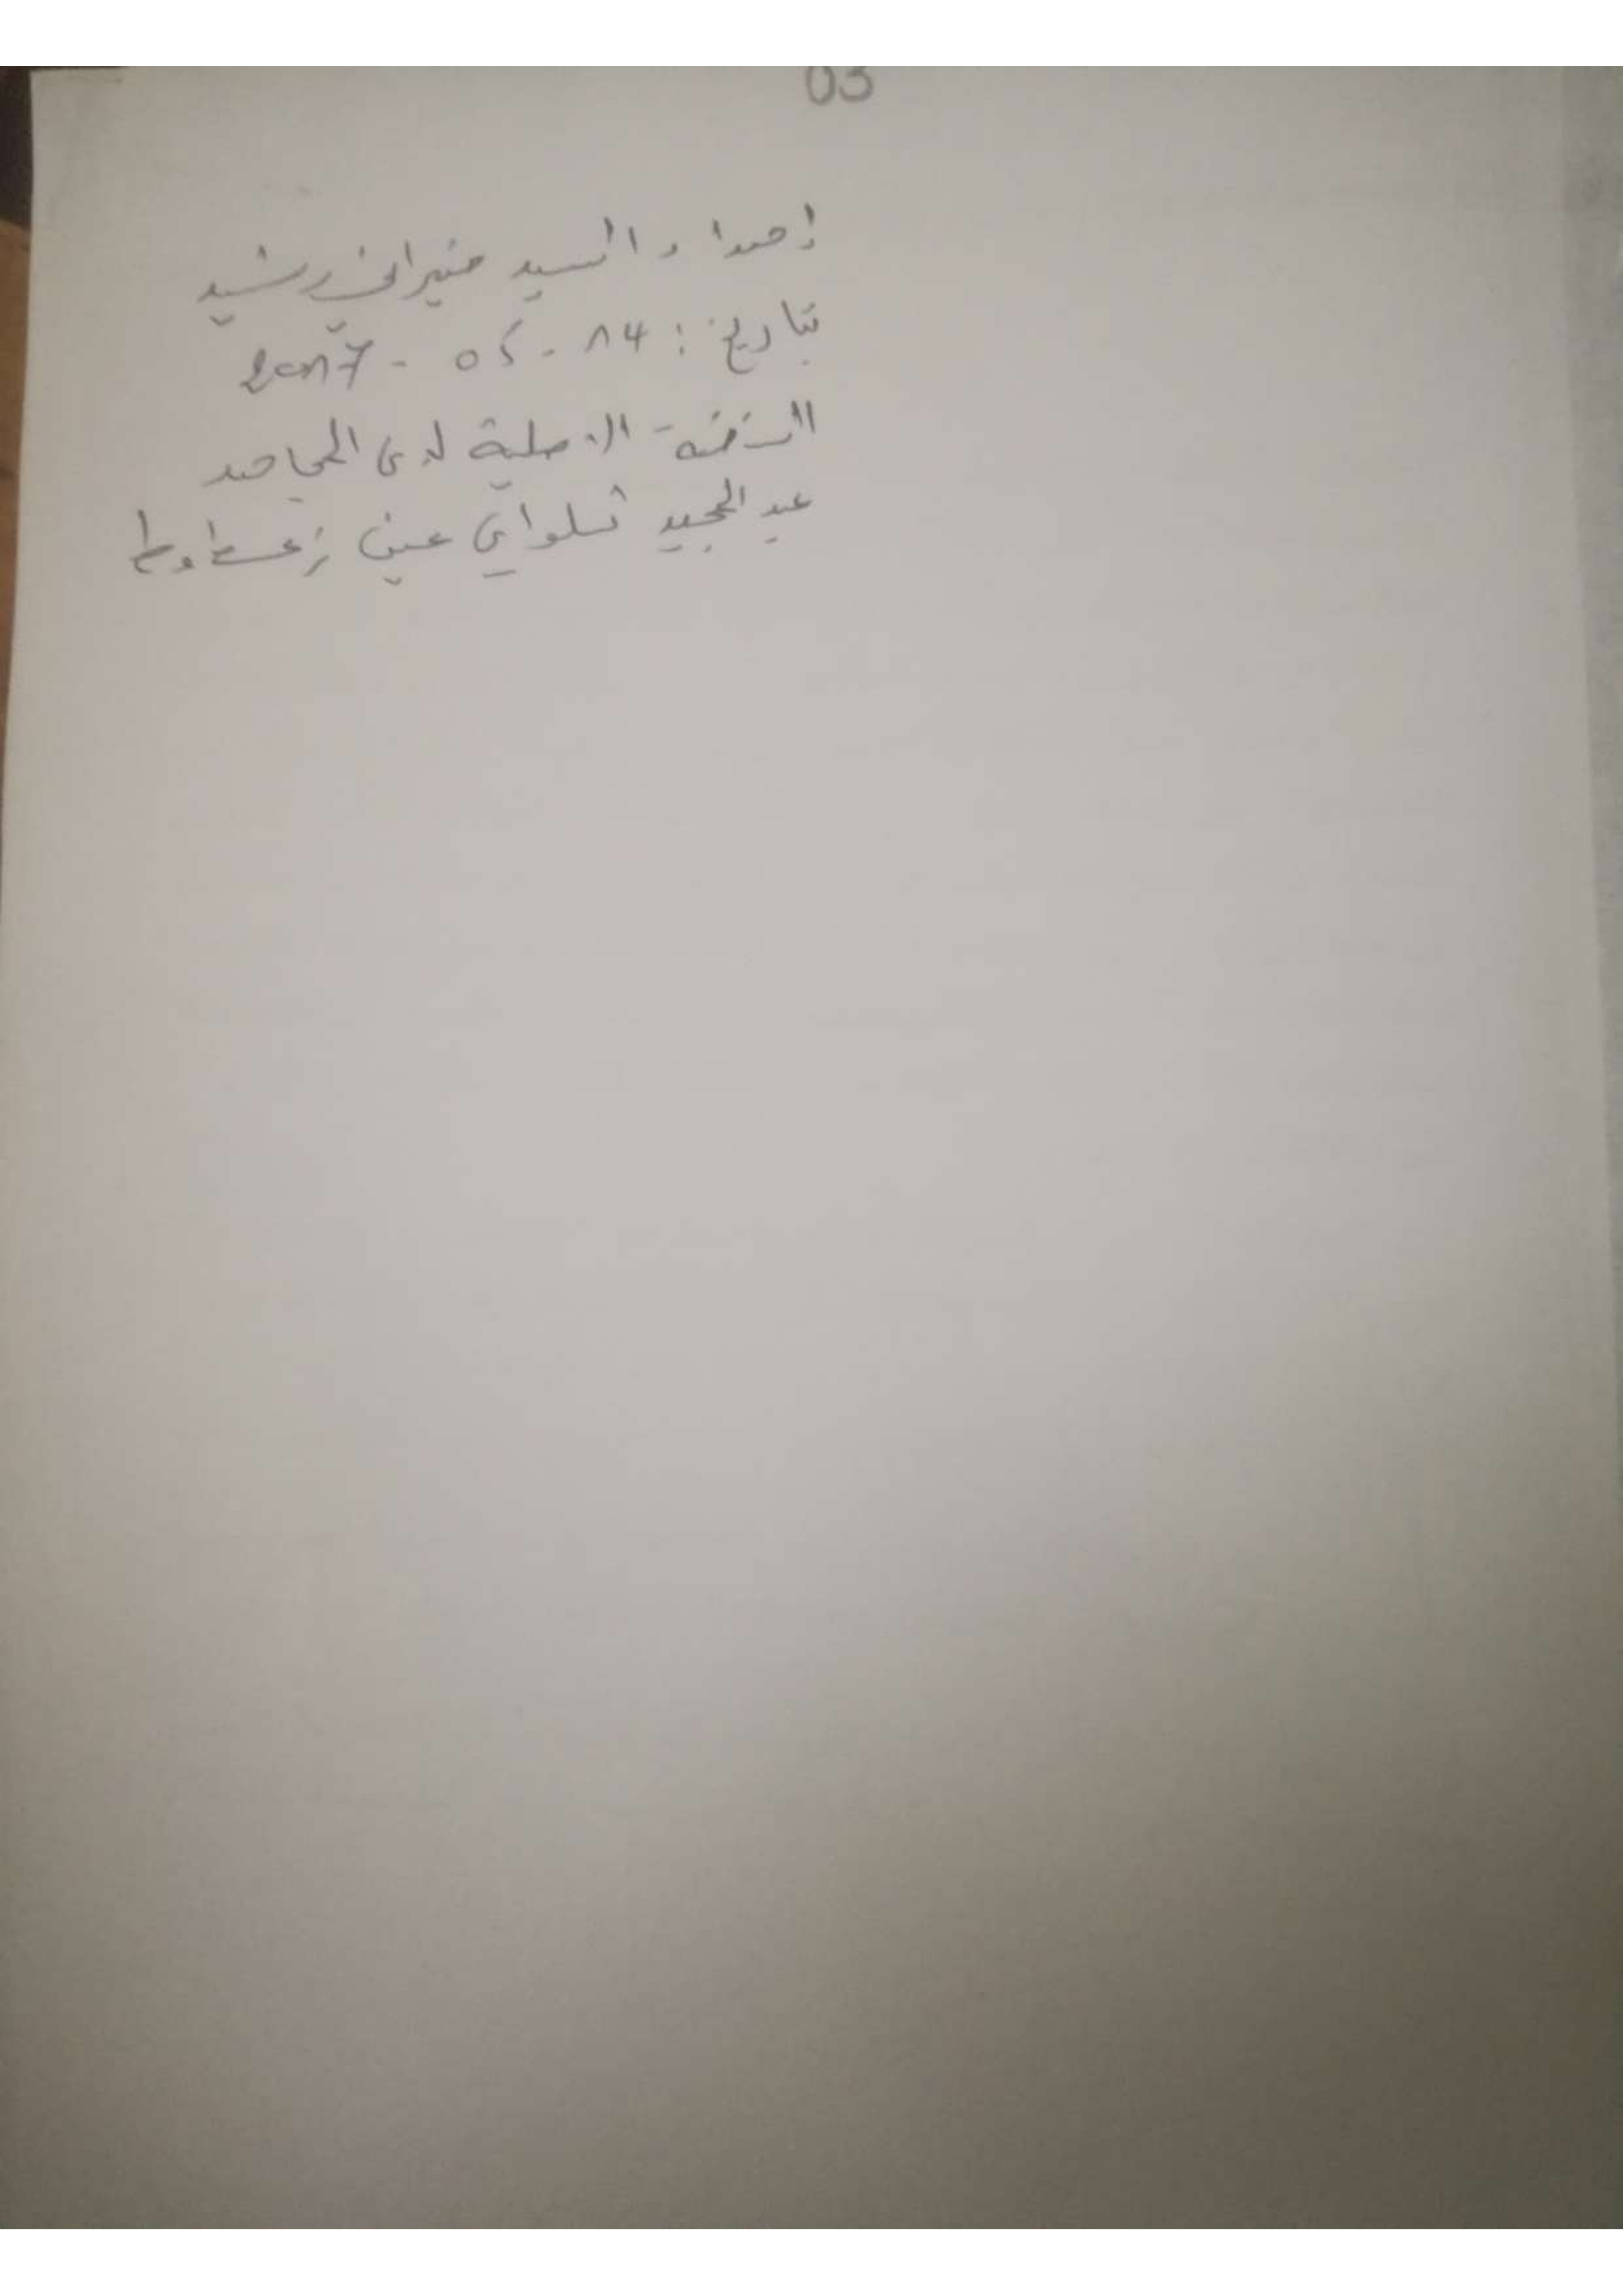 03
إهداء السيد خيراني رشيد
بتاريخ : 14 - 05 - 2017
النسخة الأصلية لدى المجاهد
عبد المجيد عين زعطوط